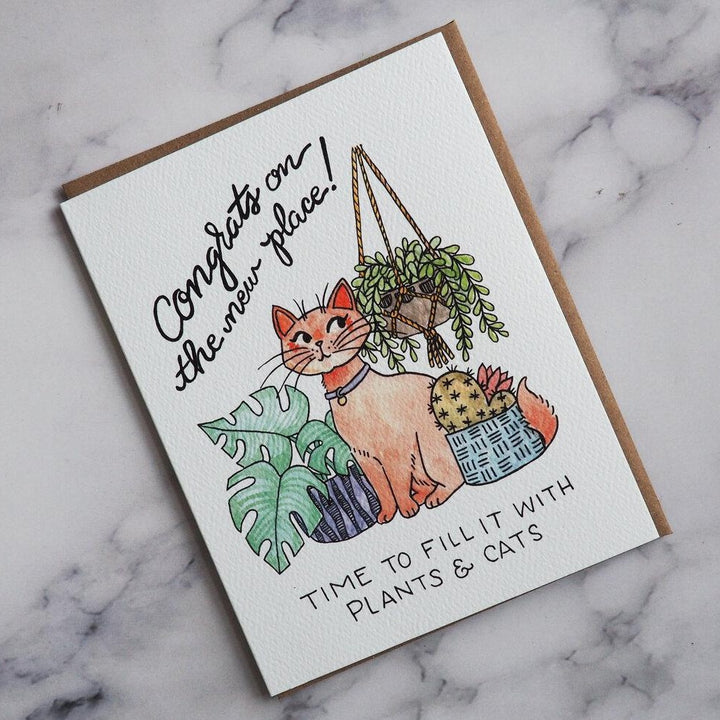 Congrats on
the new place!
TIME TO FILL IT WITH
PLANTS & CATS